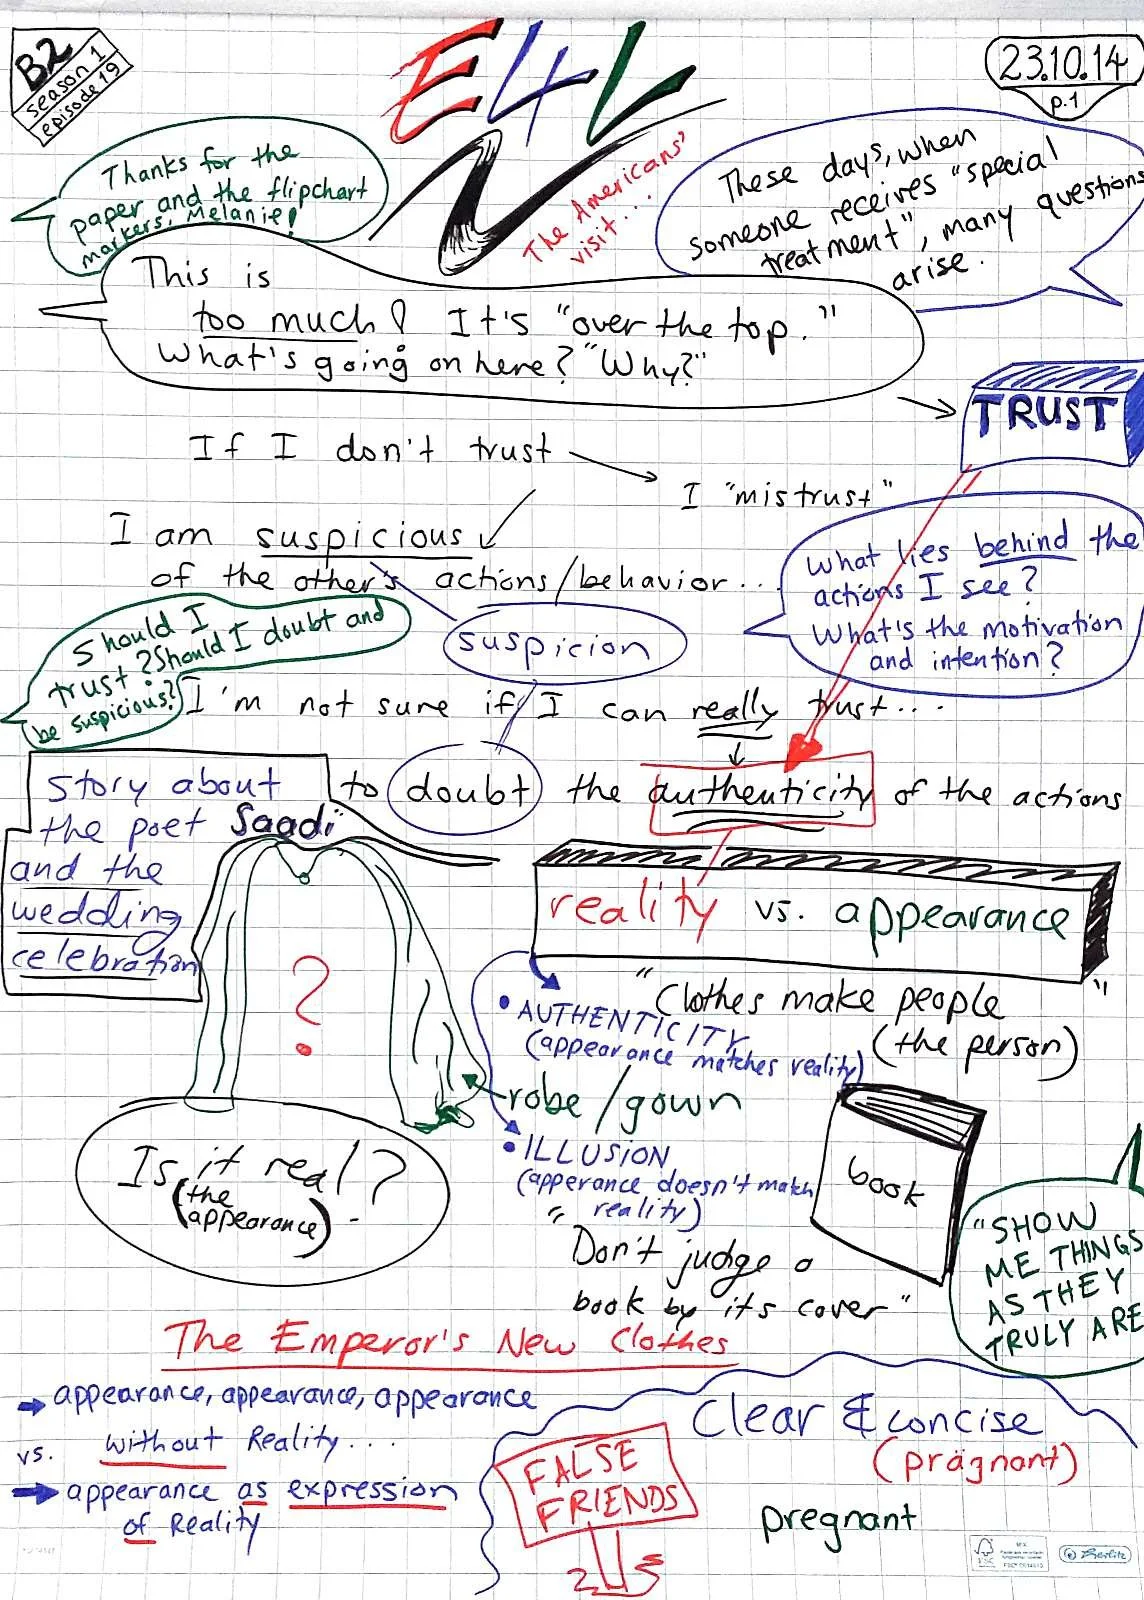 B2
season 1
episode 19
E4L
23.10.14
p.1
Thanks for the
paper and the flipchart
markers, Melanie!
The Americans'
visit...
These days, when
someone receives "special
treatment", many questions
arise.
This is
too much! It's "over the top."
What's going on here? "Why?"
TRUST
If I don't trust
I "mistrust"
I am suspicious
of the other's actions/behavior...
What lies behind the
actions I see?
What's the motivation
and intention?
suspicion
Should I
trust? Should I doubt and
be suspicious?
I'm not sure if I can really trust...
to doubt the authenticity of the actions
Story about
the poet Saadi
and the
wedding
celebration
reality vs. appearance
?
"Clothes make people"
(the person)
• AUTHENTICITY
(appearance matches reality)
robe/gown
• ILLUSION
(apperance doesn't match
reality)
Is it real?
(the
appearance)
book
"Don't judge a
book by its cover"
"SHOW
ME THINGS
AS THEY
TRULY ARE
The Emperor's New Clothes
appearance, appearance, appearance
vs. without Reality...
appearance as expression
of Reality
Clear & concise
(prägnant)
FALSE
FRIENDS
pregnant
FSC
Berlitz